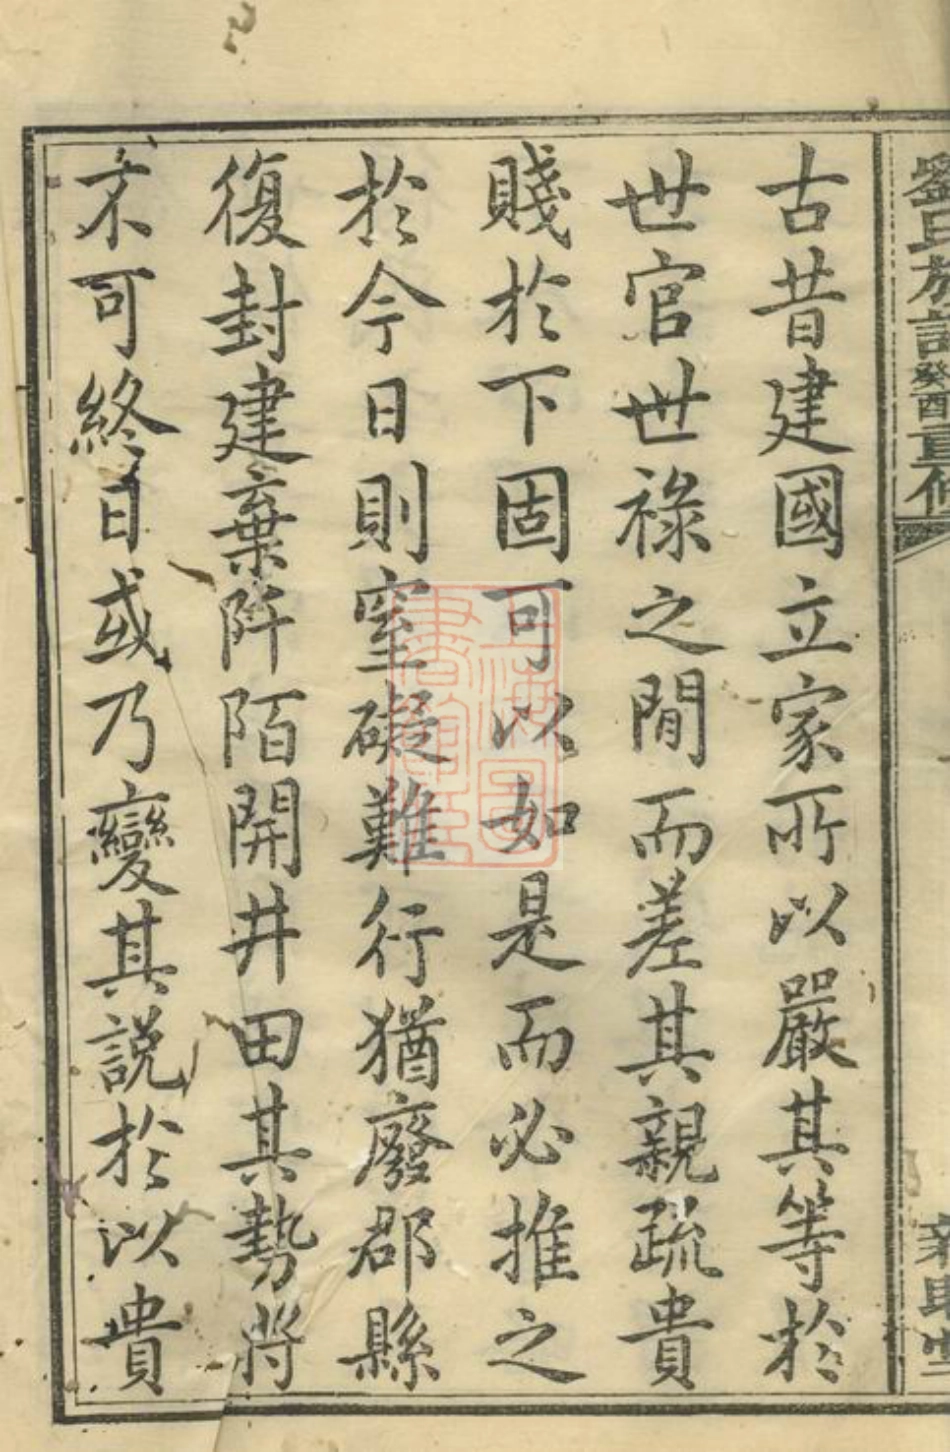 劉氏族譜 癸酉重修
古昔建國立家所以嚴其等於
世官世祿之間而差其親疏貴
賤於下固可以如是而必推之
於今日則窒礙難行猶廢郡縣
復封建棄阡陌開井田其勢將
不可終日或乃變其說於以貴